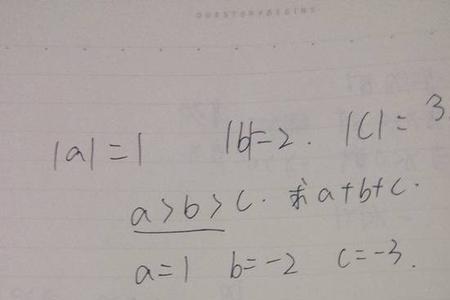 |a|=1 |b|=2. |c|=3
a>b>c. 求a+b+c.
a=1 b=-2 c=-3.